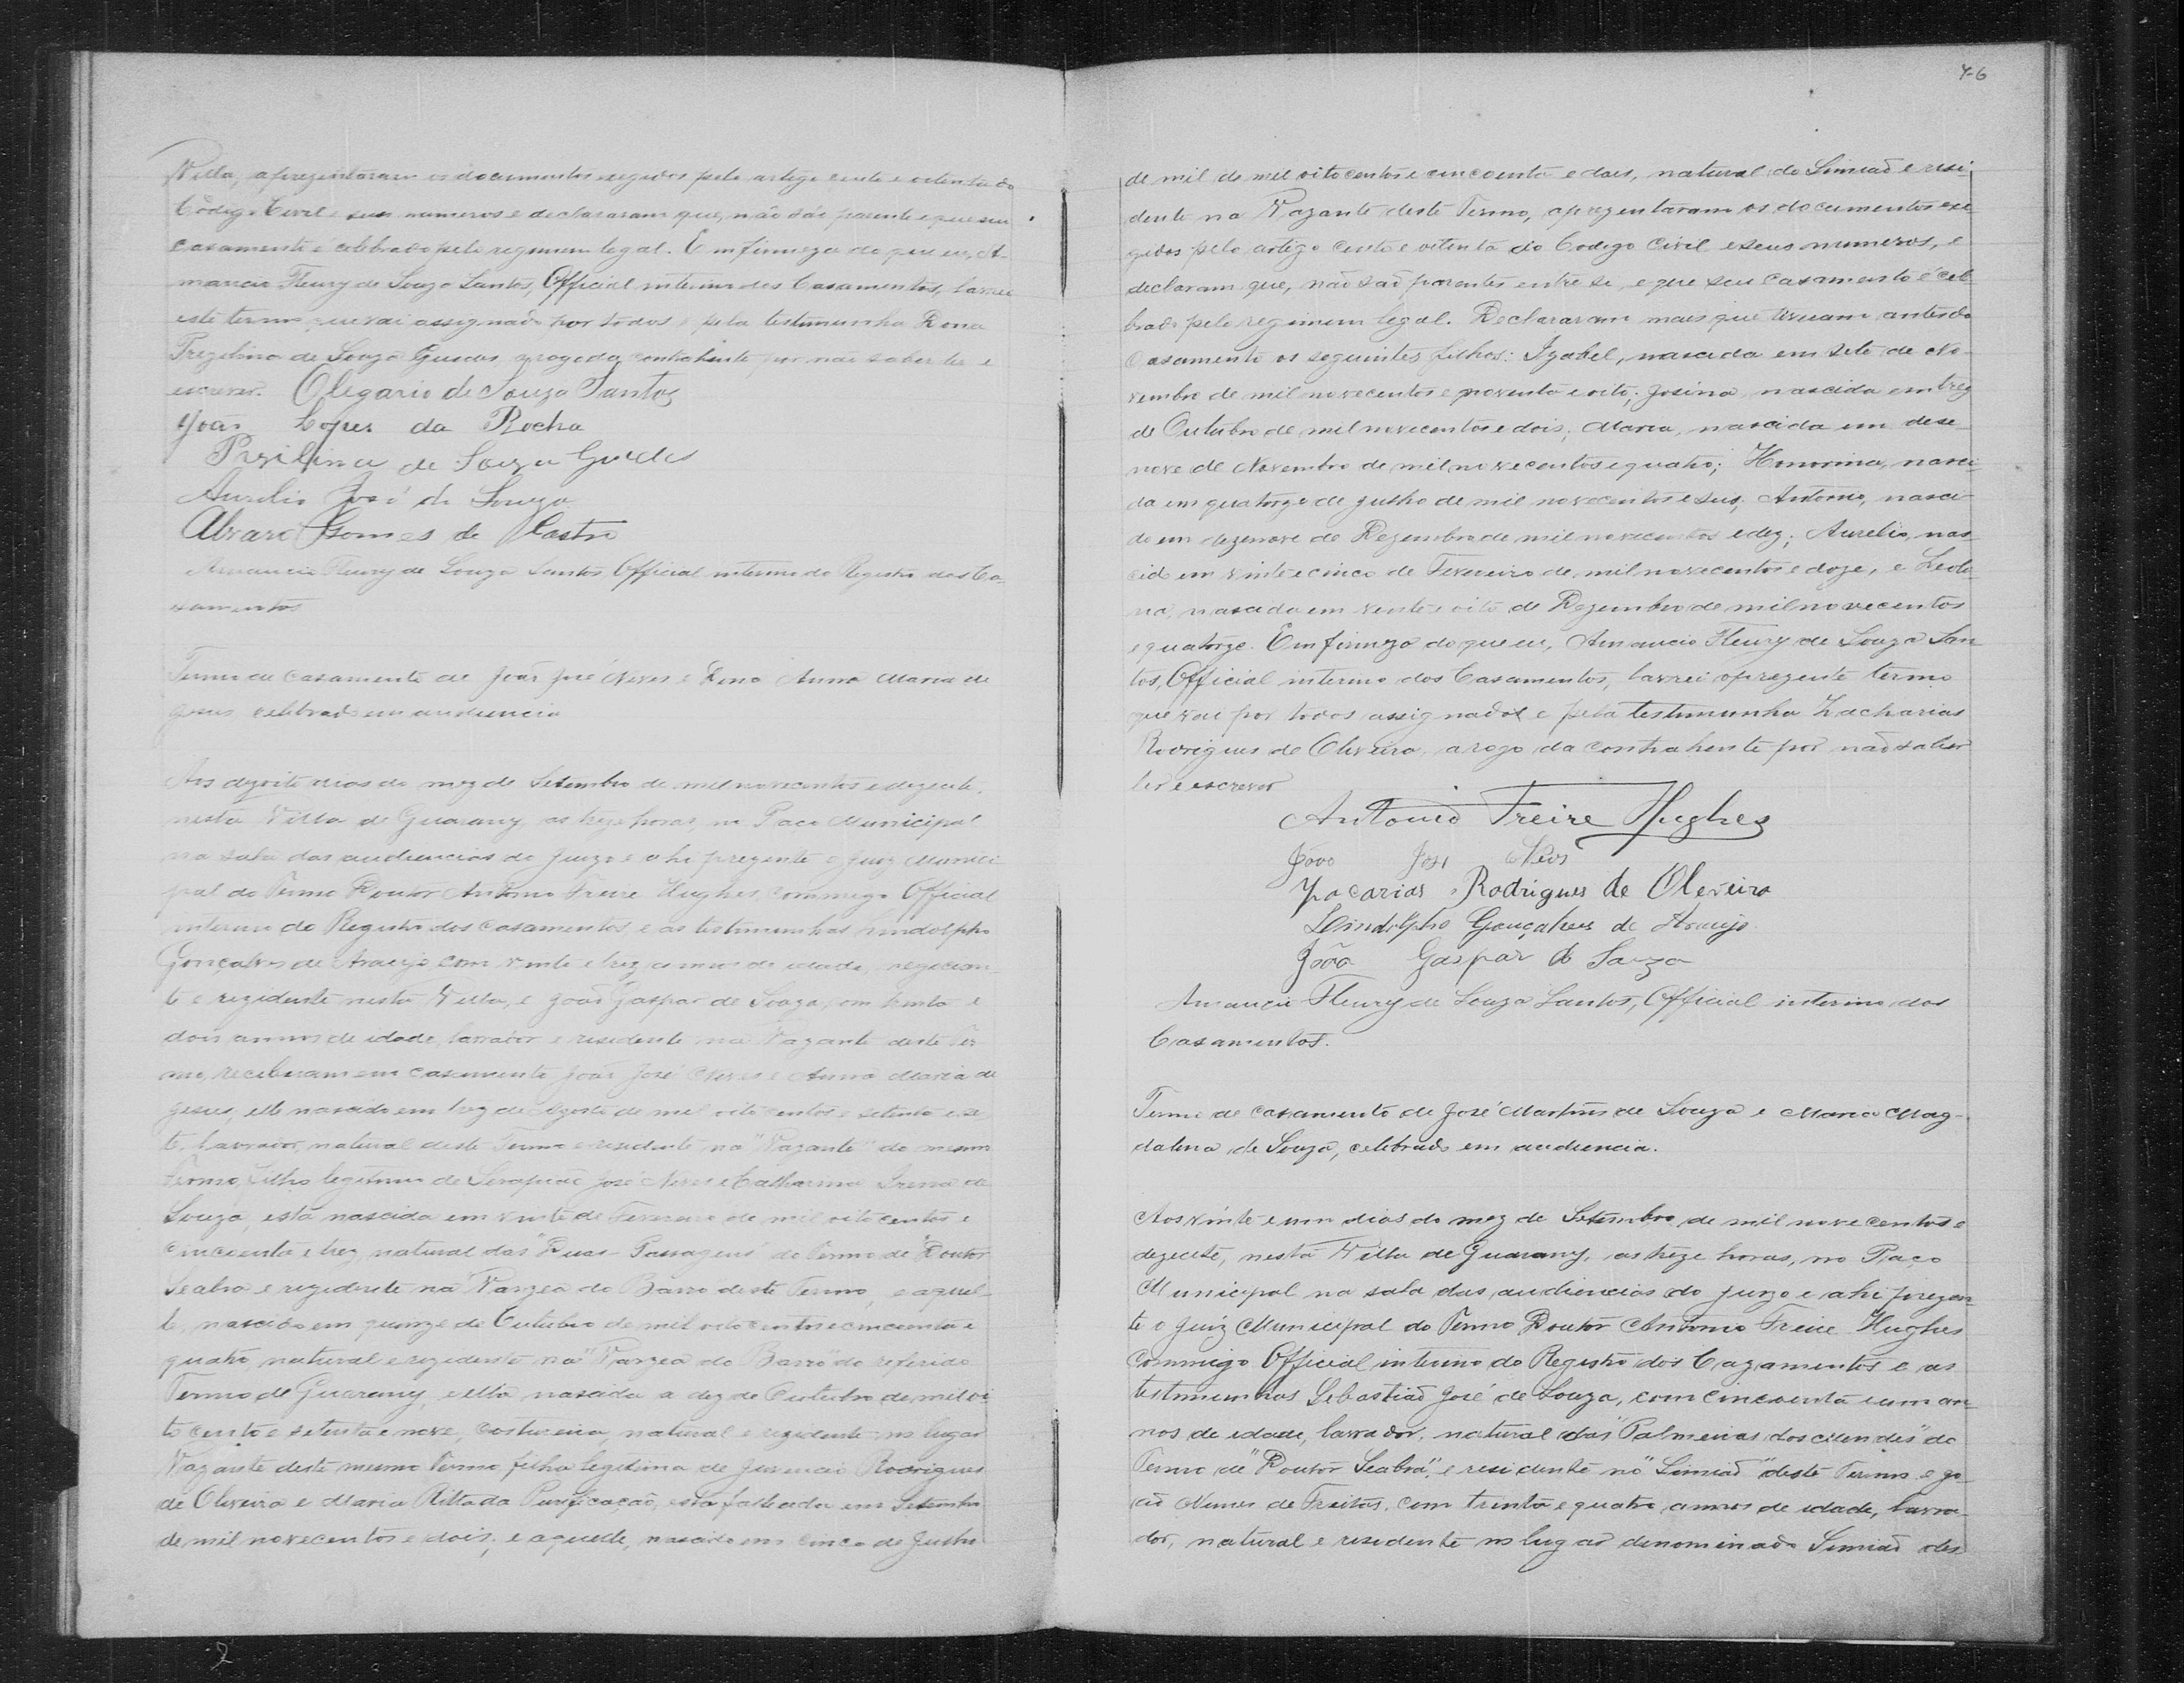 Villa, aprezentaram os documentos exegidos pelo artigo cento e oitenta do
Codigo Civil e seus numeros e declararam que, não são parente e que seu
casamento é celebrado pelo regimem legal. Em firmeza do que eu, A-
mancio Fleury de Souza Santos, Official interino dos Casamentos, lavrei
este termo que vai assignado por todos e pela testimunha Dona
de Souza Guedes, a rogo da contrahente por não saber ler e
escrever. Olegario de Souza Santos
João Lopes da Rocha
de Souza Guedes
Aurelio José de Souza
Alvaro Gomes de Castro
Amancio Fleury de Souza Santos Official interino do Registro dos Ca-
samentos
Termo de casamento de João José Neves e Dona Anna Maria de
Jesus celebrado em audiencia
Aos dezoito dias do mez de Setembro de mil novecentos e dezeceте,
nesta Villa de Guarany, as treze horas, no Paco Municipal
na sala das audiencias do Juizo e ahi prezente o Juiz Munici-
pal do Termo Doutor Antonio Freire Hughes, commigo Official
interino do Registro dos casamentos, e as testimunhas Lindolpho
Gonçalves de Araujo com vinte e trez annos de idade, negocian-
te e rezidente nesta Villa, e João Gaspar de Souza, com trinta e
dois annos de idade, lavrador e residente na Vazante deste Ter
mo, receberam em casamento João José Neves e Anna Maria de
Jesus, elle nascido em trez de Agosto de mil oito centos e setenta e se
te, lavrador, natural deste Termo e residente na "Vazante" do mesmo
Termo, filho legitimo de Serapião José Neves e Catharina Irena de
Souza, esta nascida em vinte de Fevereiro de mil oito centos e
cincoenta e trez, natural das "Duas Passagens" do Termo de "Doutor
Seabra e rezidente na Varzea do Barro deste Termo, e aquel-
le, nascido em quinze de Outubro de mil oito centos e cincoenta e
quatro, natural e rezidente na "Varzea do Barro" do referido
Termo de Guarany, e ella nascida a dez de Outubro de mil oi-
to cento e setenta e nove, costureira, natural e rezidente no lugar
Vazante deste mesmo Termo, filha legitima de Juvencio Rodrigues
de Oliveira e Maria Rita da Purificação, esta fallecida em Setembro
de mil novecentos e dois, e aquelle, nascido em cinco de Julho
46
de mil de mil oito centos e cincoenta e dois, natural do Simião e resi-
dente na Vazante deste Termo, aprezentaram os documentos exe
gidos pelo artigo cento e oitenta do Codigo Civil e seus numeros, e
declaram que, não são parentes entre si, e que seu casamento é cele
brado pelo regimem legal. Declararam mais que tiveram antes do
Casamento os seguintes filhos: Izabel, nascida em sete de No-
vembro de mil novecentos e noventa e oito; Josina, nascida em trez
de Outubro de mil novecentos e dois; Maria, nascida em deze
nove de Novembro de mil novecentos e quatro; Honorina, nasci-
da em quatorze de Julho de mil novecentos e seis; Antonio, nasci-
do em dezenove de Dezembro de mil novecentos e dez; Aurelio, nas
cido em vinte e cinco de Fevereiro de mil novecentos e doze, e
nascida em vinte e oito de Dezembro de mil novecentos
e quatorze. Em firmeza do que eu, Amancio Fleury de Souza San
tos, Official interino dos Casamentos, lavrei o prezente termo
que vai por todos assignados e pela testimunha Zacharias
Rodrigues de Oliveira, a rogo da contrahente por não saber
ler e escrever
Antonio Freire Hughes
João José Neves
Zacarias Rodrigues de Oliveira
Lindolpho Gonçalves de Araujo
João Gaspar de Souza
Amancio Fleury de Souza Santos, Official interino dos
Casamentos.
Termo de casamento de José Martins de Souza e Maria Mag-
dalena de Souza, celebrado em audiencia.
Aos vinte e um dias do mez de Setembro de mil nove centos e
dezecete, nesta Villa de Guarany, as treze horas, no Paço
Municipal na sala das audiencias do Juizo e ahi prezen-
te o Juiz Municipal do Termo Doutor Antonio Freire Hughes
commigo Official interino do Registro dos Cazamentos e as
testimunhas Sebastião José de Souza, com cincoenta e um an-
nos de idade, lavrador, natural das "Palmeiras dos Mendes" do
Termo de "Doutor Seabra", e residente no "Simião" deste Termo e Jo-
ão Nunes de Freitas, com trinta e quatro annos de idade, lavra-
dor, natural e residente no lugar denominado Simião des